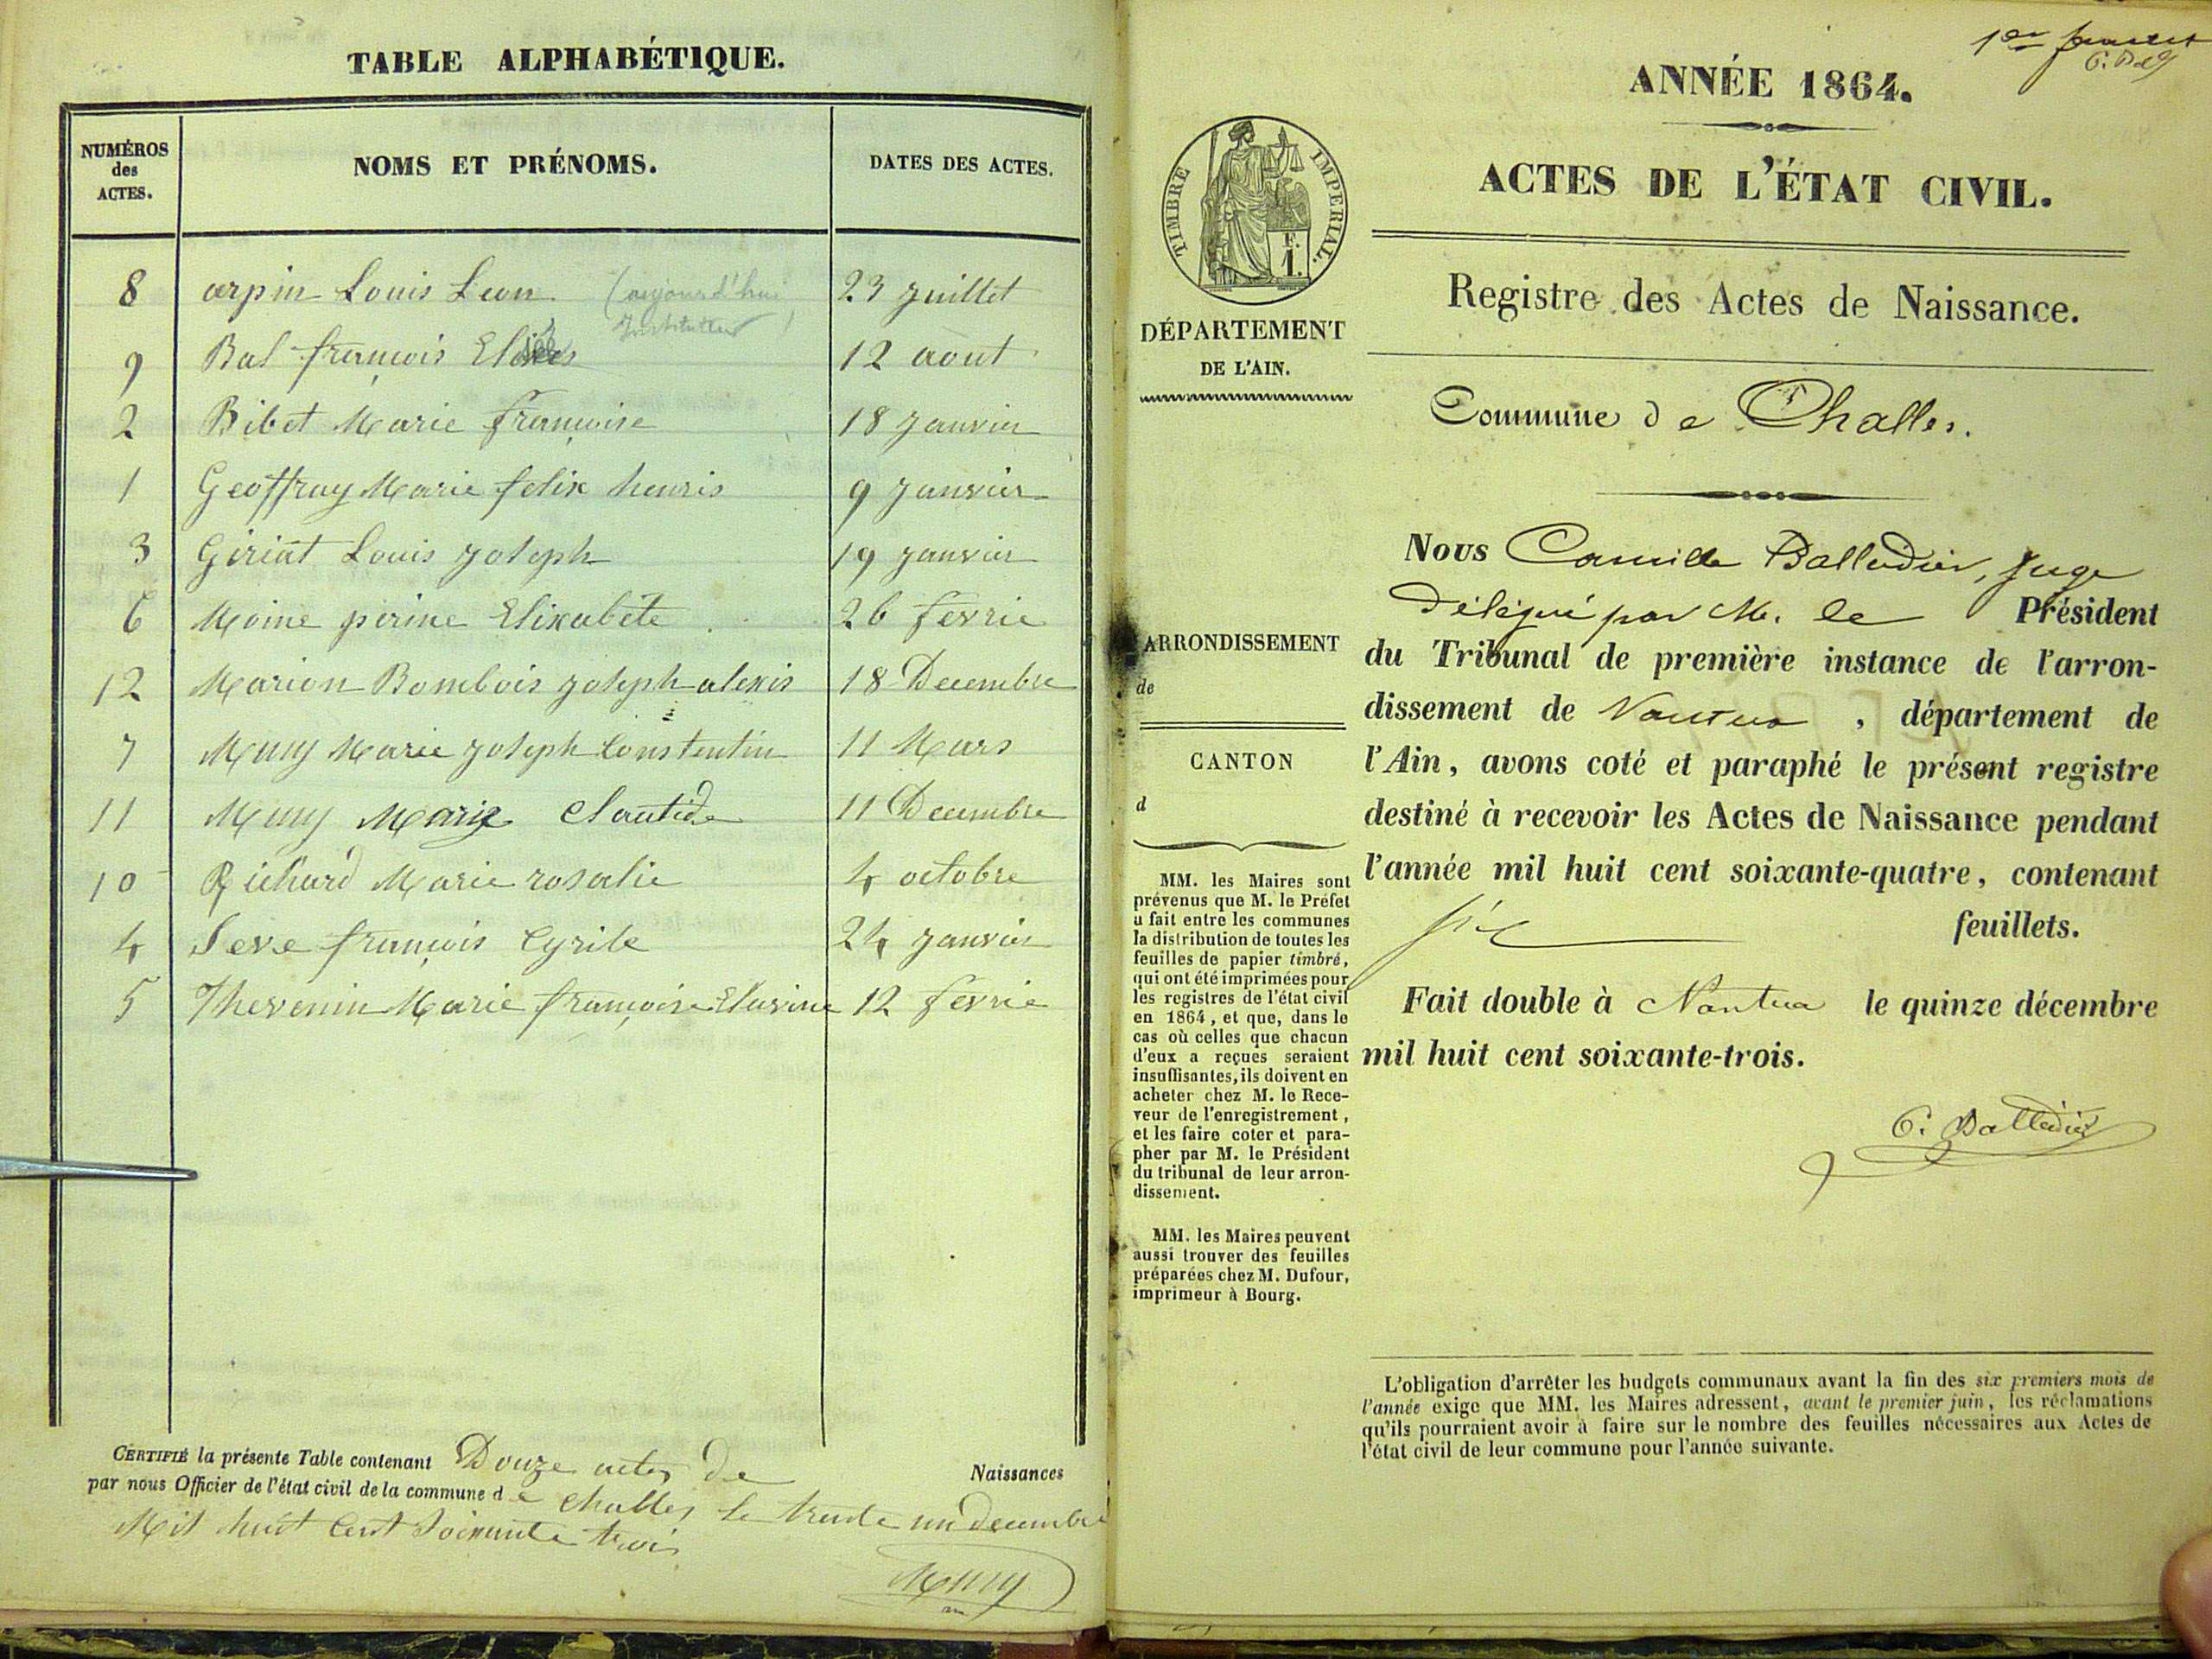 TABLE ALPHABÉTIQUE.
NUMÉROS des ACTES. NOMS ET PRÉNOMS. DATES DES ACTES.
8 arpin Louis Leon (aujourd'hui 23 juillet
Instituteur)
9 Bal françois 12 aout
2 Bibet Marie françoise 18 janvier
1 Geoffray Marie felix henris 9 janvier
3 Giriat Louis joseph 19 janvier
6 Moine perine Elixabète 26 fevrie
12 Marion Bombois joseph alexis 18 Decembre
7 Mury Marie joseph Constentin 11 Mars
11 Mury Marie Clautide 11 Decembre
10 Richard Marie rosalie 4 octobre
4 Seve françois Cyrile 24 janvier
5 Thevenin Marie françoise 12 fevrie
CERTIFIÉ la présente Table contenant Douze actes de Naissances
par nous Officier de l'état civil de la commune de Challes le trente un decembre
Mil huit Cent Soixante trois
Mury
1er
ANNÉE 1864.
ACTES DE L'ÉTAT CIVIL.
TIMBRE IMPÉRIAL.
F.
1.
Registre des Actes de Naissance.
DÉPARTEMENT
DE L'AIN.
Commune de Challes.
ARRONDISSEMENT
de
CANTON
d
MM. les Maires sont
prévenus que M. le Préfet
a fait entre les communes
la distribution de toutes les
feuilles de papier timbré,
qui ont été imprimées pour
les registres de l'état civil
en 1864, et que, dans le
cas où celles que chacun
d'eux a reçues seraient
insuffisantes, ils doivent en
acheter chez M. le Rece-
veur de l'enregistrement,
et les faire coter et para-
pher par M. le Président
du tribunal de leur arron-
dissement.
MM. les Maires peuvent
aussi trouver des feuilles
préparées chez M. Dufour,
imprimeur à Bourg.
Nous Camille Balledier, juge
délégué par M. le Président
du Tribunal de première instance de l'arron-
dissement de Nantua, département de
l'Ain, avons coté et paraphé le présent registre
destiné à recevoir les Actes de Naissance pendant
l'année mil huit cent soixante-quatre, contenant
six feuillets.
Fait double à Nantua le quinze décembre
mil huit cent soixante-trois.
C. Balledier
L'obligation d'arrêter les budgets communaux avant la fin des six premiers mois de
l'année exige que MM. les Maires adressent, avant le premier juin, les réclamations
qu'ils pourraient avoir à faire sur le nombre des feuilles nécessaires aux Actes de
l'état civil de leur commune pour l'année suivante.